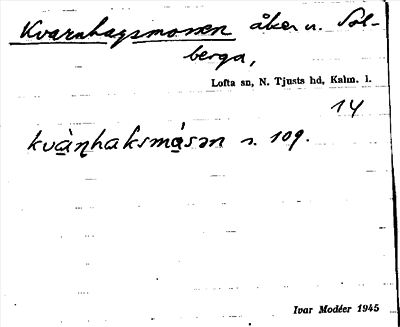 Kvarnhagsmossen åker u. Sol-
berga,
Lofta sn, N. Tjusts hd, Kalm. l.
14
kvàṇhaksmásən s. 109.
Ivar Modéer 1945